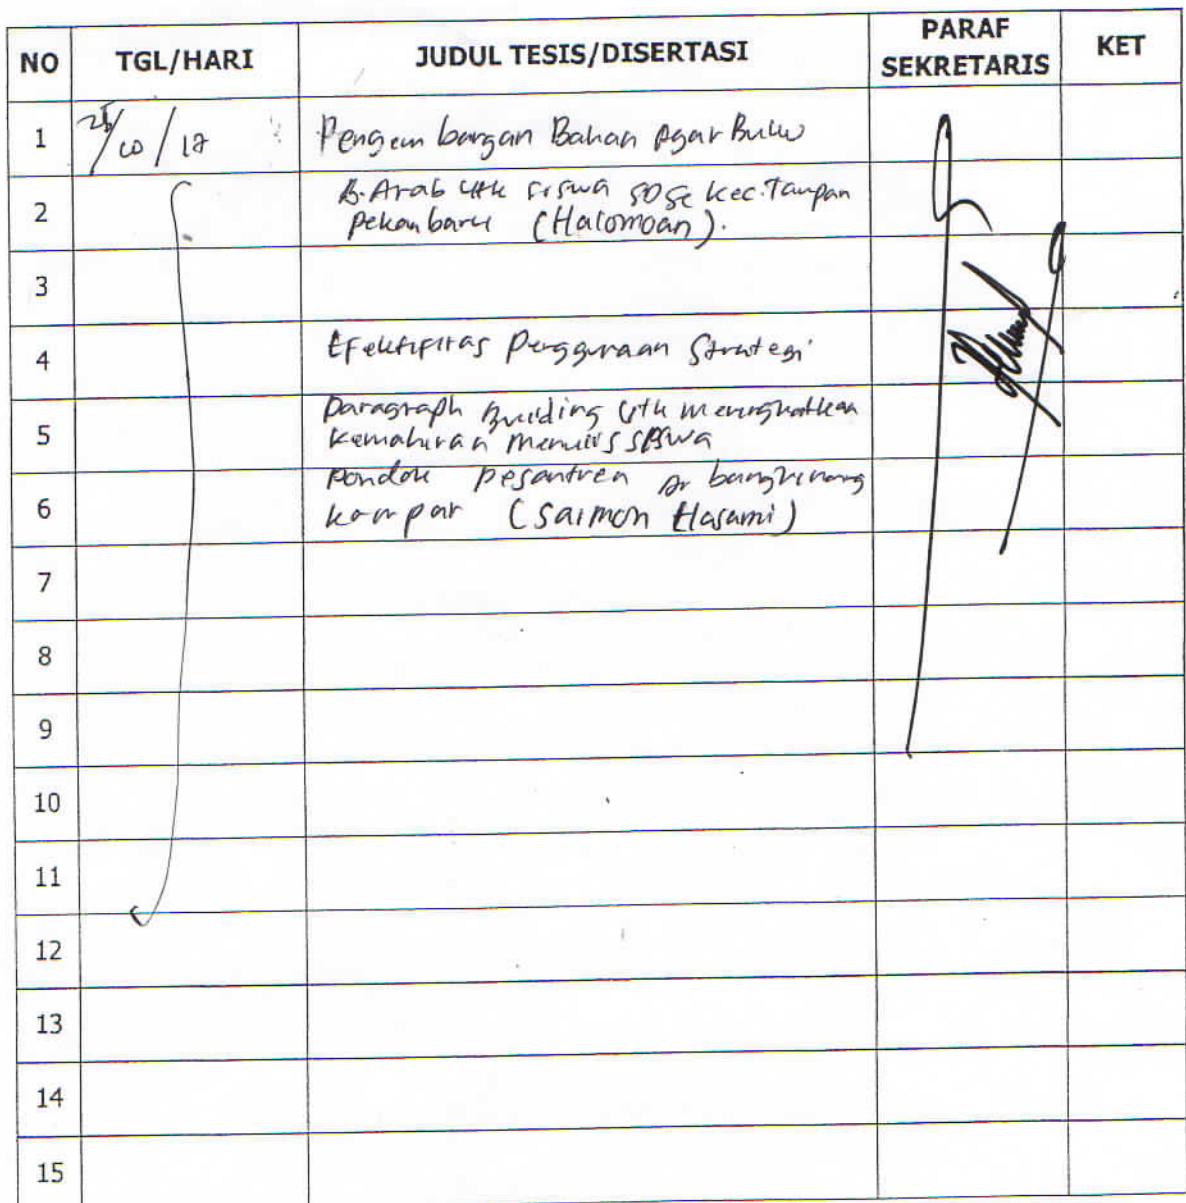 NO TGL/HARI JUDUL TESIS/DISERTASI PARAF SEKRETARIS KET
1 25/10/17 Pengembangan Bahan Ajar Buku
2 B. Arab utk siswa SD Se Kec. Tampan
Pekanbaru (Halomoan).
3
4 Efektifitas Penggunaan Strategi
5 Paragraph Building utk meningkatkan
kemahiran menulis siswa
6 Pondok pesantren bangkinang
kampar (Saimon Hasami)
7
8
9
10
11
12
13
14
15